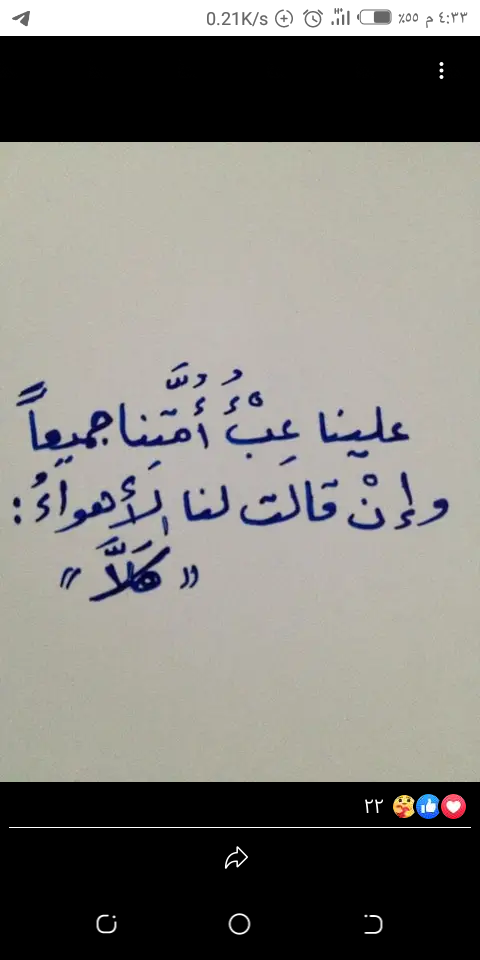 0.21K/s ٤:٣٣ م ٥٥٪
علينا عِبْءُ أُمَّتِنا جميعاً
وإنْ قالَت لنا الأهواءُ:
«كَلاَّ»
٢٢